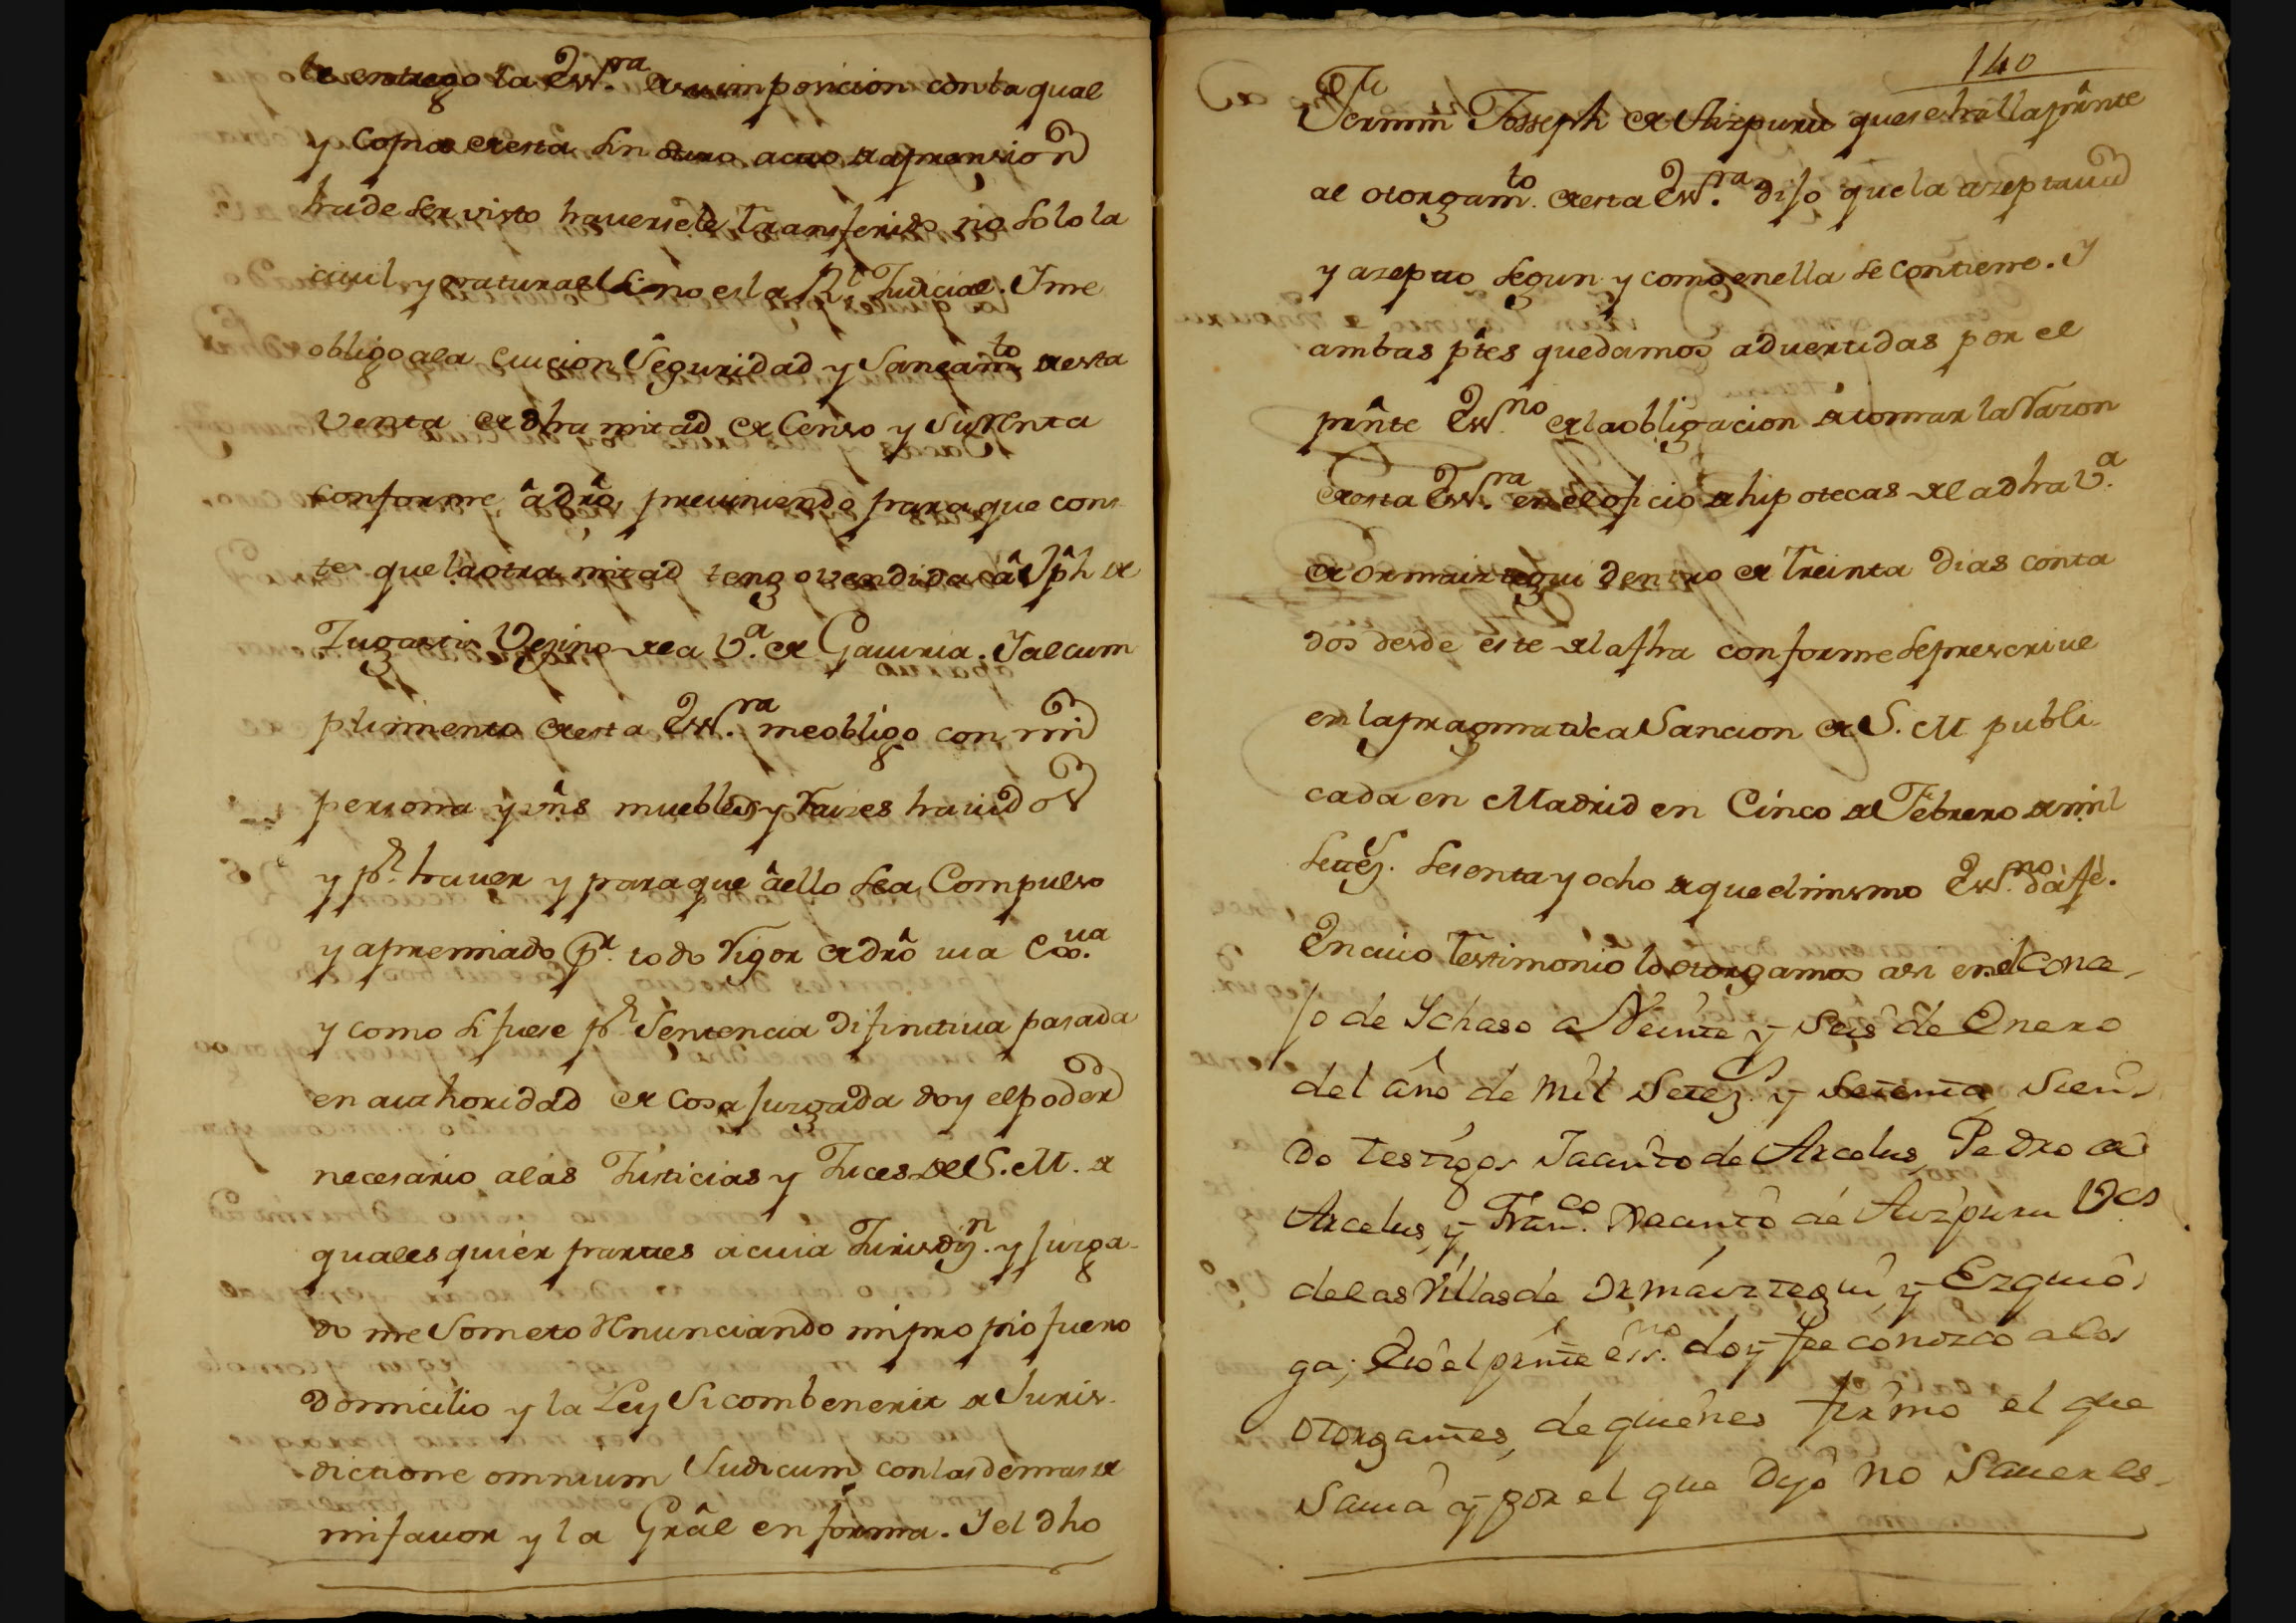 le entrego la Ess.ra de su imposicion con la qual
y copia de esta sin otro acto de aprension
ha de ser visto hauersele transferido no solo la
ciuil y natural si no es la Rl Judicial. Y me
obligo a la euicion Seguridad y Saneamto de esta
Venta de dha mitad de Censo y su Renta
conforme â drô, preuiniendo para que cons
te que la otra mitad tengo vendida â Jph de
Zugasti Vezino de la V.a de Gauiria. Y al cum
plimiento de esta Ess.ra me obligo con mi
persona y vns muebles y raizes hauidos
y pr hauer y para que âello sea Compulso
y apremiado pr. todo rigor de drô via exx.ua
y como si fuese pr Sentencia difinitiua pasada
en authoridad de cosa juzgada doy el poder
necesario a las Justicias y Juces de S. M. de
quales quier partes a cuia Jurisdizn. y juzga-
do me Someto Renunciando mi propio fuero
domicilio y la Ley Si combenerit de Juris-
dictione omnium Judicum con las demas de
mi fauor y la Grâl en forma. Y el dho
140
Fermin Josseph de Aizpuru que se halla prînte
al otorgamto. de esta Ess.ra dijo que la azeptaua
y azepto segun y como en ella se contiene. Y
ambas ptes quedamos aduertidas por el
prînte Ess.no de la obligacion de tomar la Razon
de esta Ess.ra en el oficio de hipotecas de la dha V.a
de Ormaiztegui dentro de Treinta dias conta
dos desde este de la fha conforme se prescriue
en la pragmatica Sancion de S. M publi
cada en Madrid en Cinco de Febrero de mil
setezs. sesenta y ocho de que el mismo Ess.no da fè.
En cuio Testimonio lo otorgamos asi en el conce-
jo de Ichaso a Veinte y Seis de Enero
del año de mil Setezs. y setenta, sien-
do testigos Jacinto de Arcelus, Pedro de
Arcelus, y Fran.co Jacinto de Aizpuru V.es
de las Villas de Ormaiztegui, y Ezquio-
ga; È io el prînte ess.no doy fee conozco a los
otorgantes, de quienes firmo el que
Sauia y por el que Dijo no Sauer es-